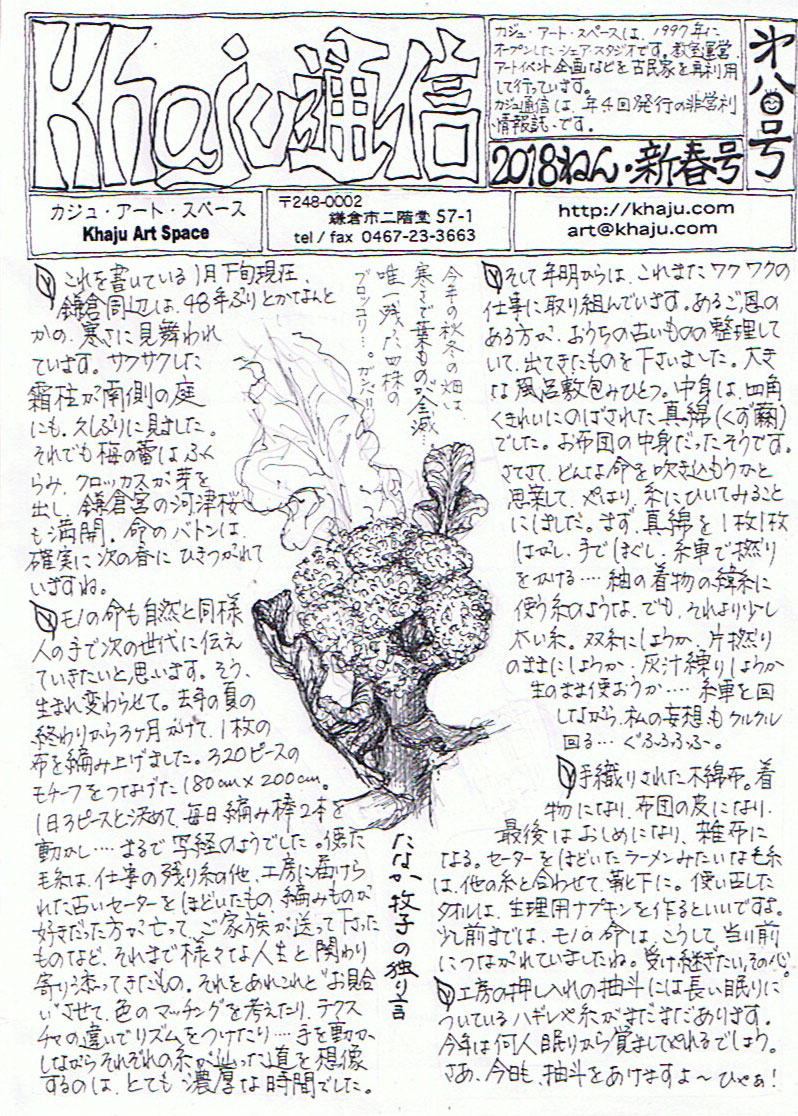 Khaju通信
カジュ・アート・スペースは、1997年に
オープンしたシェア・スタジオです。教室運営・
アートイベント企画などを古民家を再利用
して行っています。
カジュ通信は、年4回発行の非営利
情報誌です。
2018ねん・新春号
第八〇号
カジュ・アート・スペース
Khaju Art Space
〒248-0002
鎌倉市二階堂 57-1
tel / fax 0467-23-3663
http://khaju.com
art@khaju.com
これを書いている1月下旬現在、
鎌倉周辺は、48年ぶりとかなんと
かの、寒さに見舞われ
ています。サクサクした
霜柱が南側の庭
にも、久しぶりに見ました。
それでも梅の蕾はふく
らみ、クロッカスが芽を
出し、鎌倉宮の河津桜
も満開。命のバトンは、
確実に次の春にひきつがれて
いますね。
モノの命も自然と同様
人の手で次の世代に伝え
ていきたいと思います。そう、
生まれ変わらせて。去年の夏の
終わりから3ヶ月かけて、1枚の
布を編み上げました。320ピースの
モチーフをつなげた180cm×200cm。
1日3ピースと決めて、毎日編み棒2本を
動かし‥‥まるで写経のようでした。使った
毛糸は、仕事の残り糸の他、工房に届けら
れた古いセーターをほどいたもの、編みものが
好きだった方が亡って、ご家族が送って下さった
ものなど、それまで様々な人生と関わり
寄り添ってきたもの。それをあれこれと“お見合
い”させて、色のマッチングを考えたり、テクス
チャの違いでリズムをつけたり‥‥手を動かし
しながらそれぞれの糸が辿った道を想像
するのは、とても濃厚な時間でした。
今年の秋冬の畑は、
寒さで葉ものが全滅…
唯一残った四株の
ブロッコリー…。ガンバリ
たなか牧子の独り言
そして年明からは、これまたワクワクの
仕事に取り組んでいます。あるご恩の
ある方が、おうちの古いものの整理して
いて、出てきたものを下さいました。大き
な風呂敷包みひとつ。中身は、四角
くきれいにのばされた真綿(くず繭)
でした。お布団の中身だったそうです。
さてさて、どんな命を吹き込もうかと
思案して、やはり、糸にひいてみること
にしました。まず、真綿を1枚1枚
はがし、手でほぐし、糸車で撚り
をかける‥‥紬の着物の緯糸に
使う糸のような、でも、それより少し
太い糸。双糸にしようか、片撚り
のままにしようか、灰汁練りしようか
生のまま使おうか‥‥糸車を回
しながら、私の妄想もクルクル
回る‥‥ぐふふふふ〜。
手織りされた木綿布。着
物になり、布団の皮になり、
最後はおしめになり、雑布に
なる。セーターをほどいたラーメンみたいな毛糸
は、他の糸と合わせて、靴下に。使い古した
タオルは、生理用ナプキンを作るといいですよ。
少し前までは、モノの命は、こうして、当り前
につながれていましたね。受け継ぎたい、その心。
工房の押し入れの抽斗には長い眠りに
ついているハギレや糸がまだまだあります。
今年は何人眠りから覚ましてやれるでしょう。
さあ、今日も、抽斗をあけますよ〜ひゃぁ！